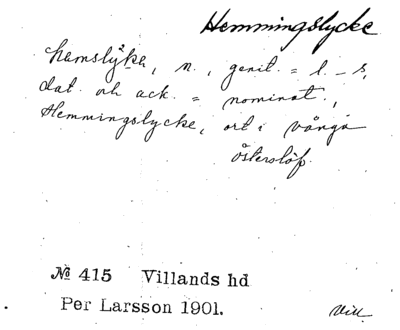 Hemmingslycke
hemslyka, n., genit. = l. - s,
dat. och ack. = nominat.,
Hemmingslycke, ort i vånga
Österslöf.
№ 415 Villands hd
Per Larsson 1901.
Vill